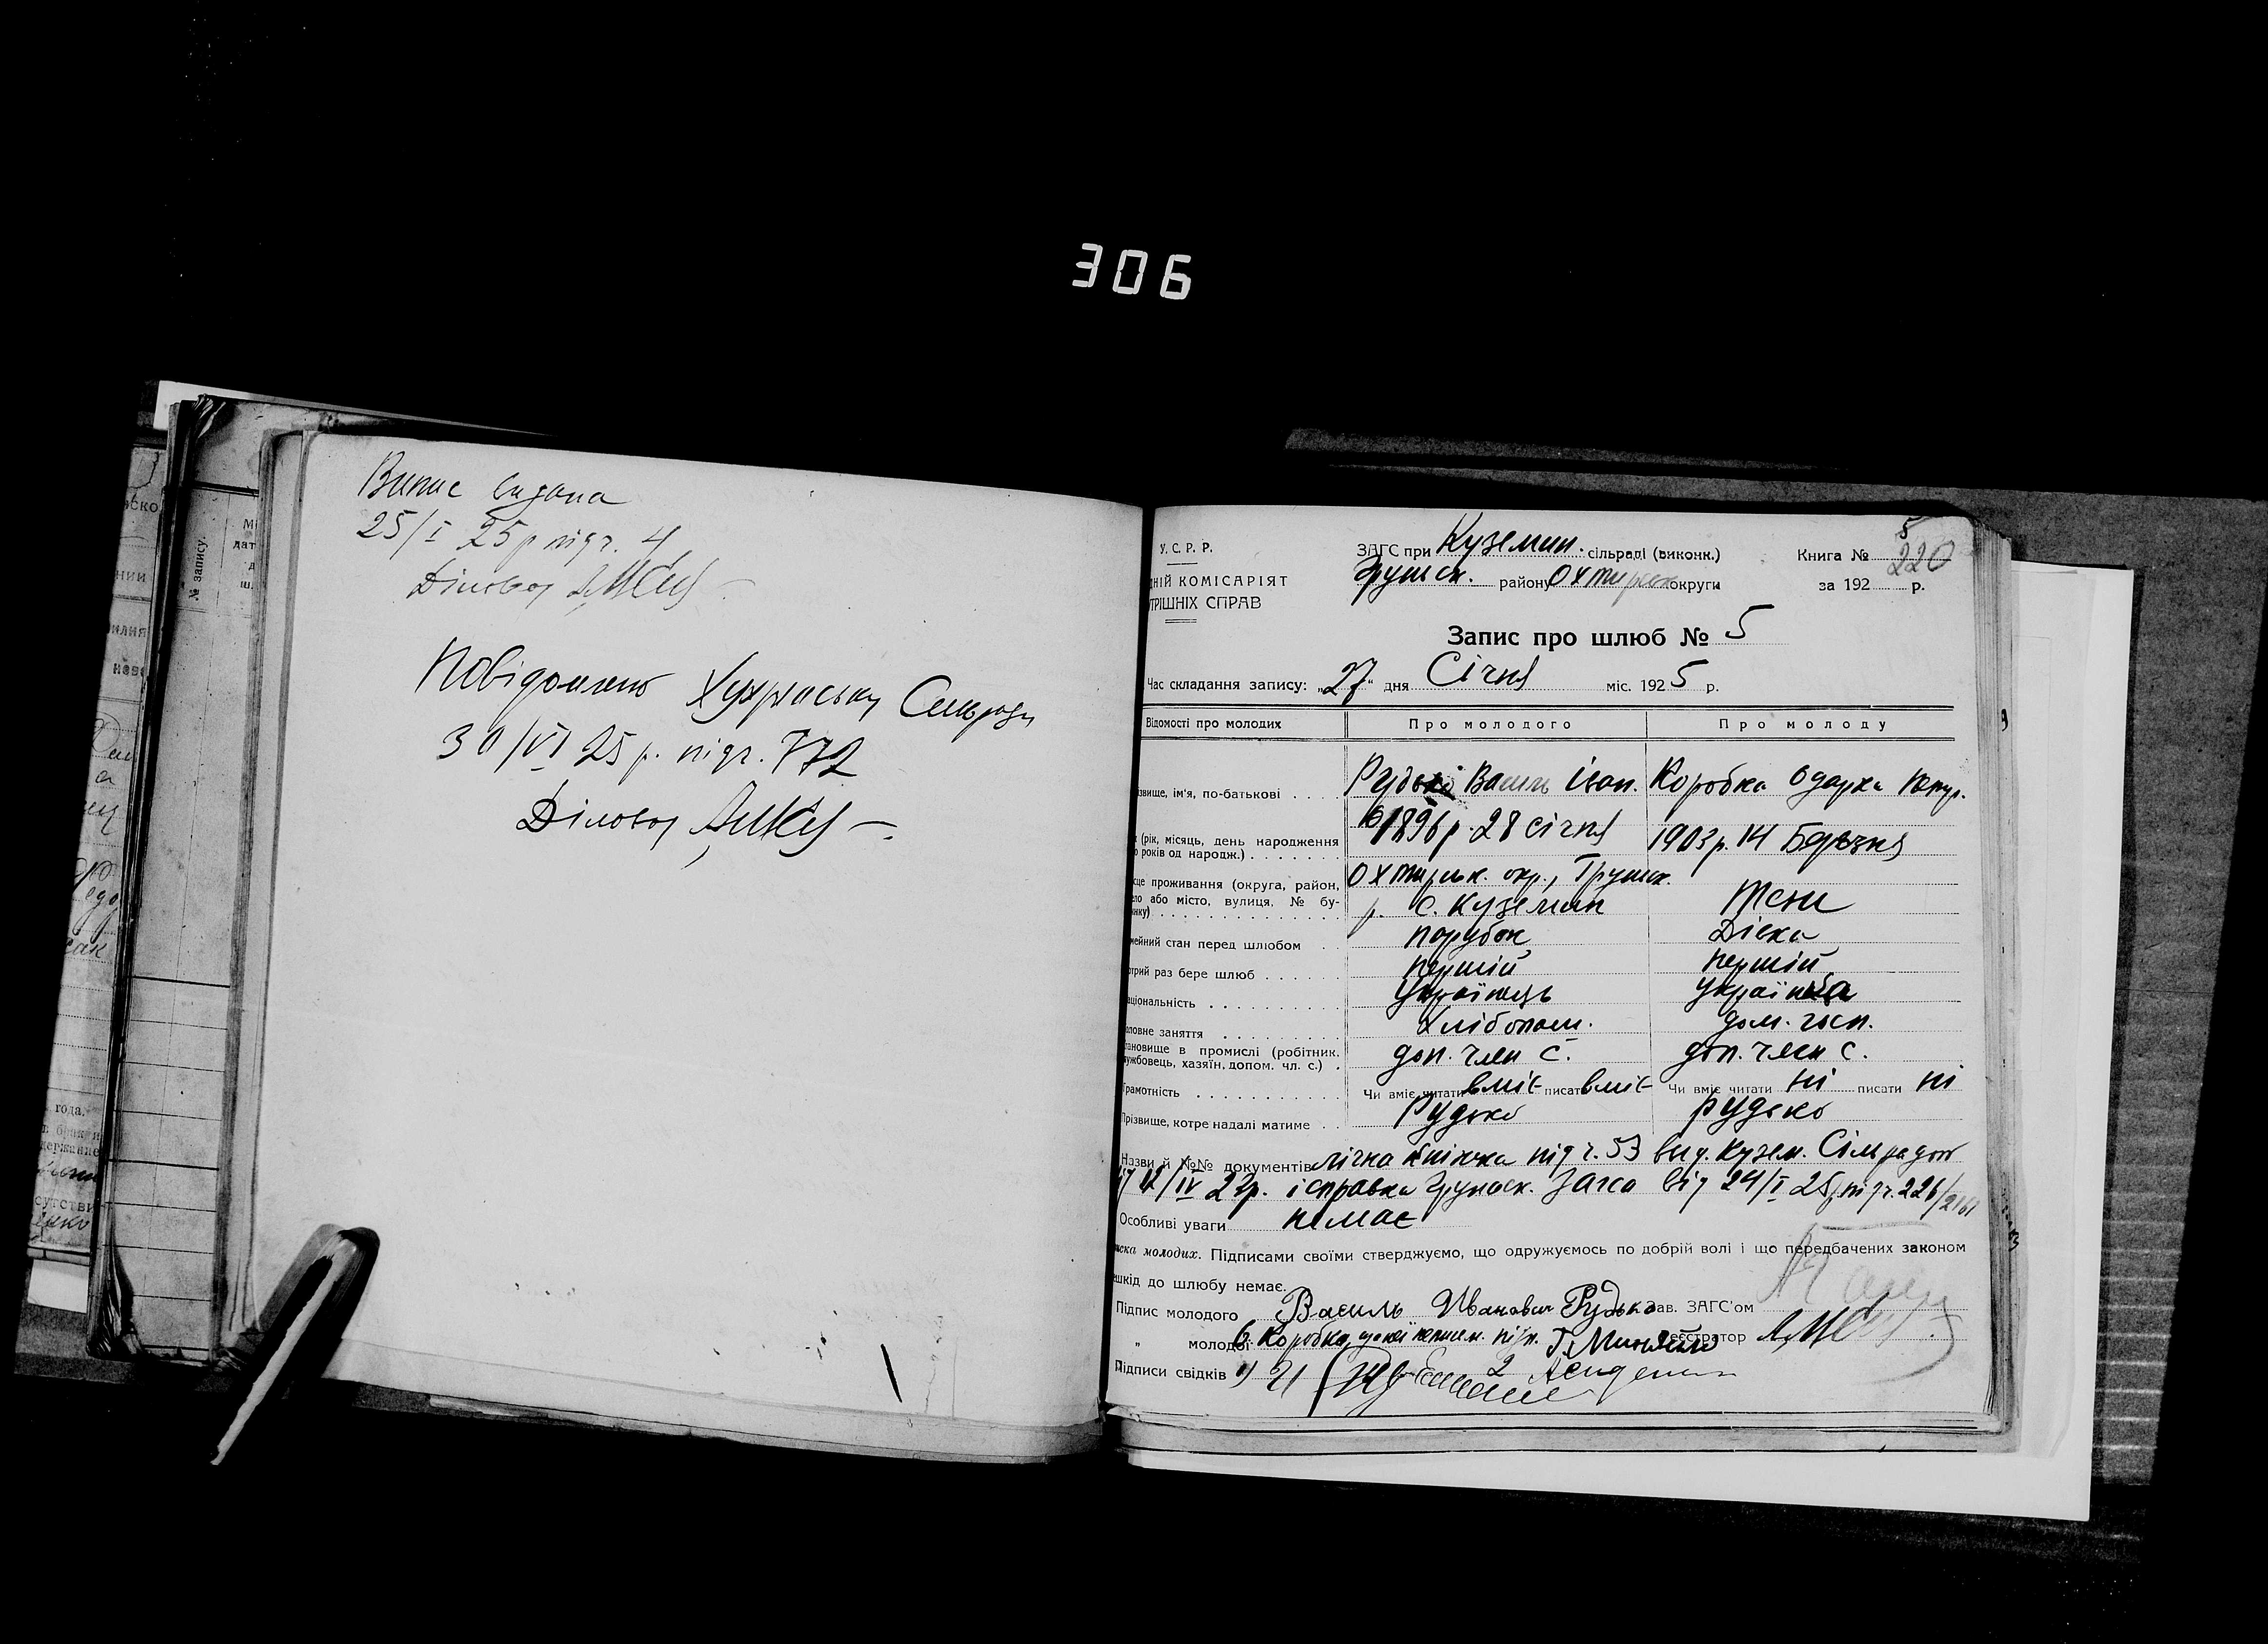 306
Випис видана
25/I 25 р під ч. 4
Діловод
Повідомлено Сельраду
30/VI 25 р. під ч. 772
Діловод
№ запису.
года.
У. С. Р. Р.
ДНІЙ КОМІСАРІЯТ
ТРІШНІХ СПРАВ
ЗАГС при Куземин. сільраді (виконк.)
Грунськ. району Охтирськ округи
Книга № 5
220
за 192 р.
Запис про шлюб № 5
Час складання запису: „27" дня Січня міс. 1925 р.
Відомості про молодих Про молодого Про молоду
ізвище, ім'я, по-батькові Рудько Василь Іван. Коробка Одарка
(рік, місяць, день народження
років од народж.) 1896 р. 28 січня 1903 р. 14 Березня
сце проживання (округа, район, Охтирськ. окр., Грунськ.
ло або місто, вулиця, № бу-
инку) р. с. Куземин Теж
мейний стан перед шлюбом парубок Дівка
отрий раз бере шлюб перший перший
аціональність Українець Українка
оловне заняття Хлібопаш. дом. госп.
тановище в промислі (робітник,
ужбовець, хазяїн, допом. чл. с.) доп. член с. доп. член с.
Грамотність Чи вміє читати вміє писати вміє Чи вміє читати ні писати ні
Прізвище, котре надалі матиме Рудько Рудько
Назви й №№ документів лічна книжка під ч. 53 вид. Кузем. Сільрадою
від 12/IV 23р. і справка Грунськ. Загса від 24/I 25р під ч. 226/
Особливі уваги немає
иска молодих. Підписами своїми стверджуємо, що одружуємось по добрій волі і що передбачених законом
шкід до шлюбу немає.
Підпис молодого Василь Иванович Рудько Зав. ЗАГС'ом
„ молодої Коробка, неписьм. підп. Реєстратор
Підписи свідків 1) 2